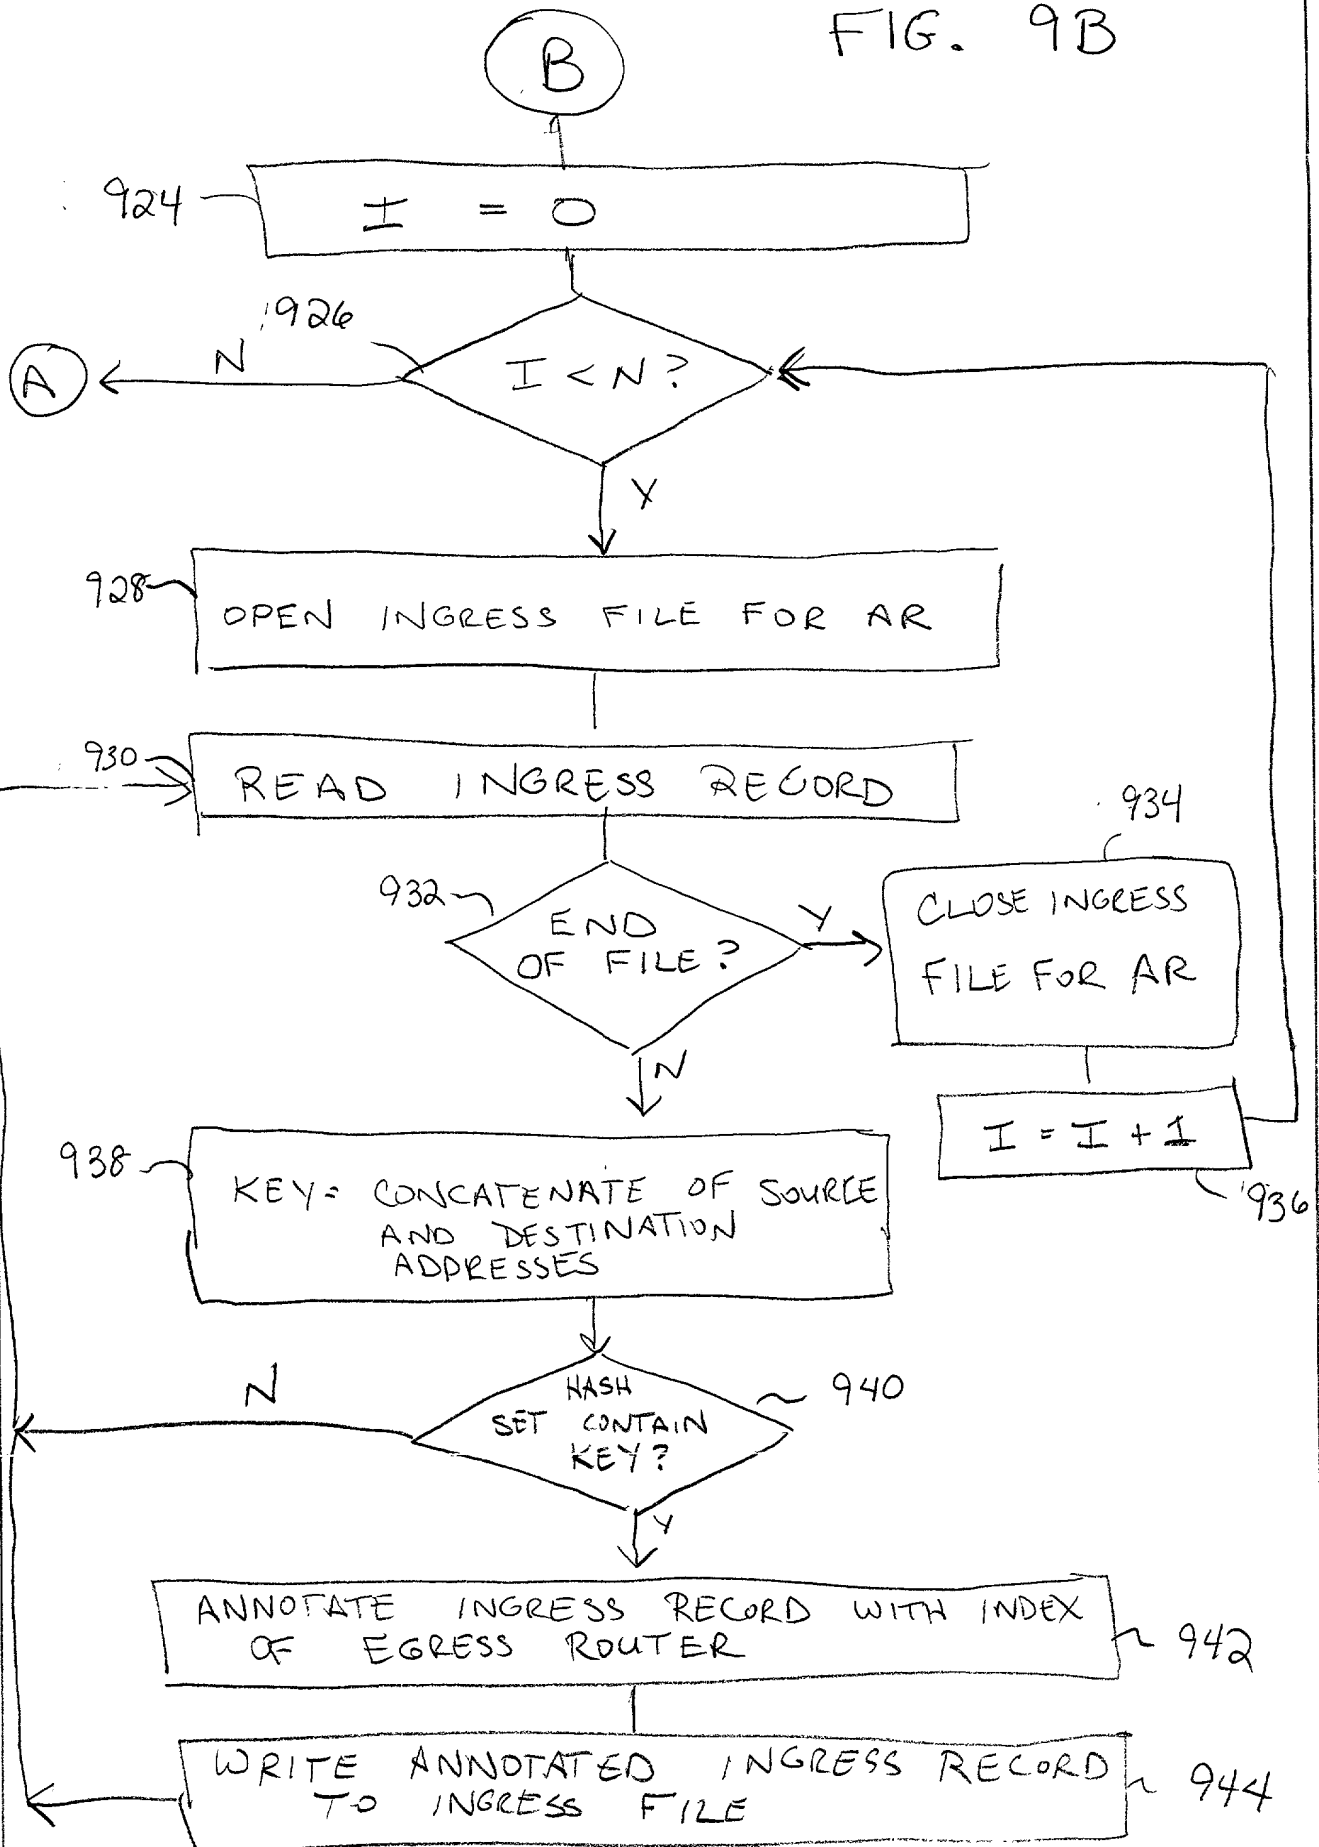 FIG. 9B
B
924
I = 0
926
I < N?
N
A
Y
928
OPEN INGRESS FILE FOR AR
930
READ INGRESS RECORD
934
932
END
OF FILE?
Y
CLOSE INGRESS
FILE FOR AR
N
I = I + 1
936
938
KEY= CONCATENATE OF SOURCE
AND DESTINATION
ADDRESSES
N
940
HASH
SET CONTAIN
KEY?
Y
ANNOTATE INGRESS RECORD WITH INDEX
OF EGRESS ROUTER
942
WRITE ANNOTATED INGRESS RECORD
TO INGRESS FILE
944